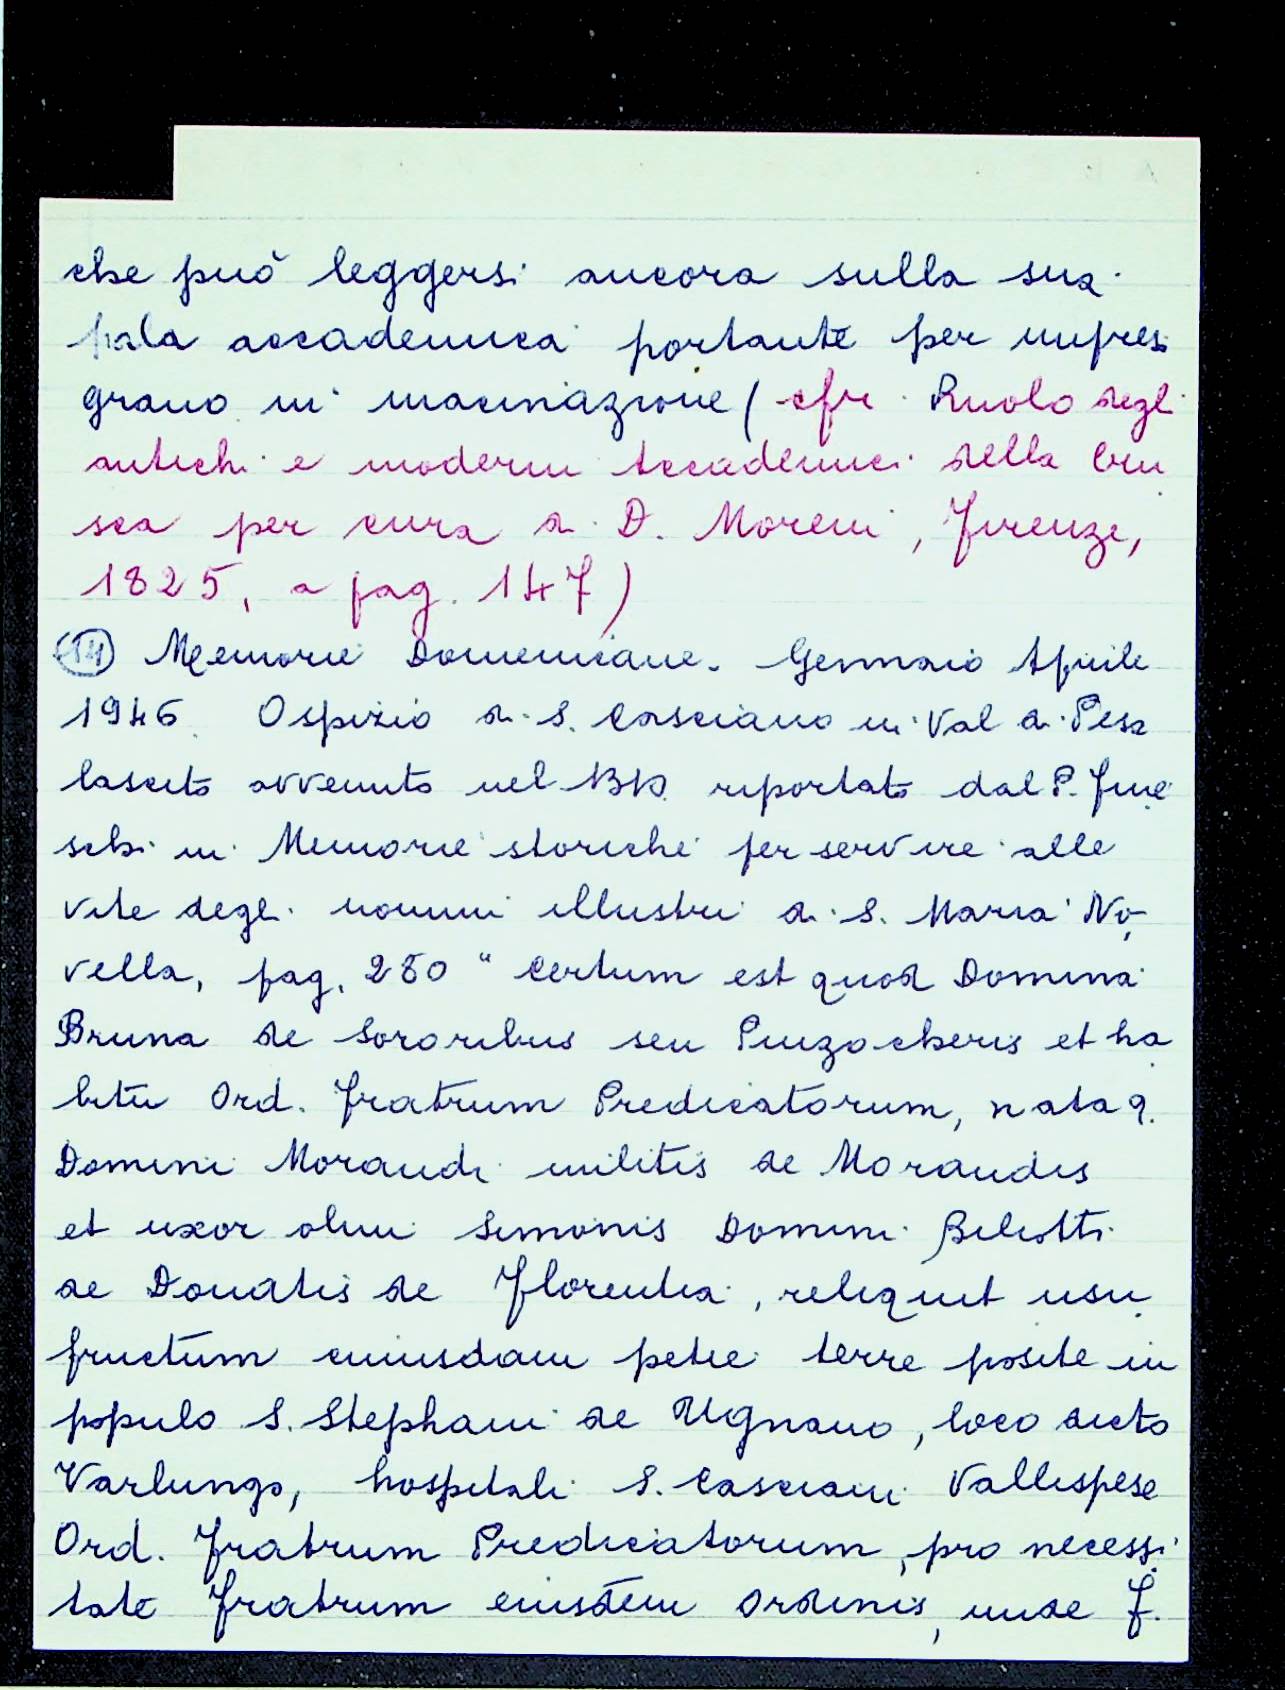 che può leggersi ancora sulla sua
pala accademica portante per impresa
grano in macinazione (cfr. Ruolo degli
antichi e moderni Accademici della Cru
sca per cura di D. Moreni, Firenze,
1825, a pag. 147)
(14) Memorie Domenicane. Gennaio Aprile
1946. Ospizio di S. Casciano in Val di Pesa
lascito avvenuto nel riportato dal P. Fine
schi in Memorie storiche per servire alle
vite degli uomini illustri di S. Maria No,
vella, pag. 280 " Certum est quod Domina
Bruna de Sororibus seu Pinzocheris et ha
bitu Ord. Fratrum Predicatorum, nata q.
Domini Morandi militis de Morandis
et uxor olim Simonis Domini Beliotti
de Donatis de Florentia, reliquit usu
fructum cuiusdam petie terre posite in
populo S. Stephani de Ugnano, loco dicto
Varlungo, hospitali S. Casciani Vallispese
Ord. Fratrum Predicatorum, pro necessi
tate Fratrum eiusdem Ordinis, unde F.